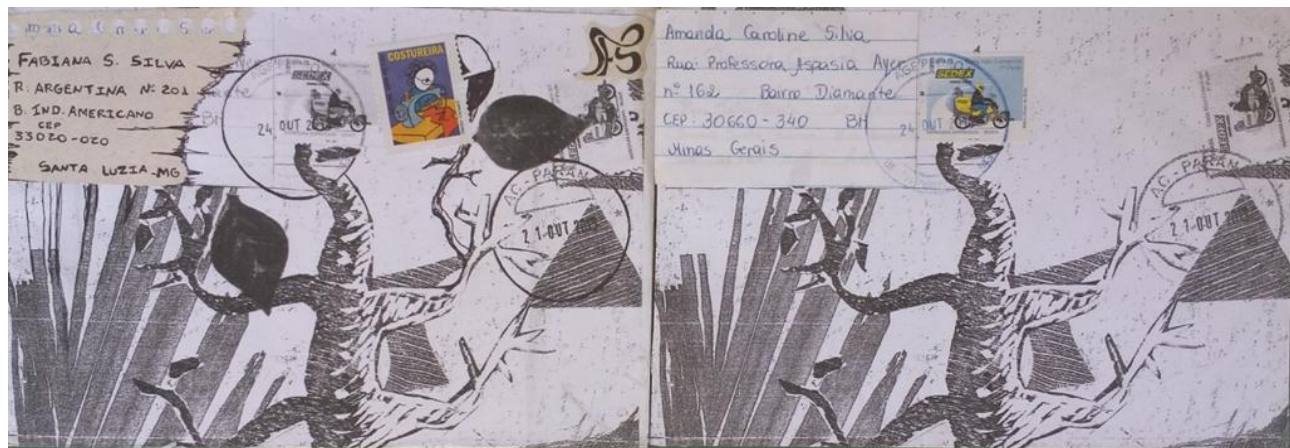 FABIANA S. SILVA
R. ARGENTINA Nº 201
B. IND. AMERICANO
CEP
33020-020
SANTA LUZIA-MG
SEDEX
24 OUT
COSTUREIRA
AC-PARAM
21 OUT
Amanda Caroline Silva
Rua: Professora Aspasia
nº 162 Bairro Diamante
CEP: 30660-340 BH
Minas Gerais
SEDEX
24 OUT
SEDEX
AC-PARAM
21 OUT